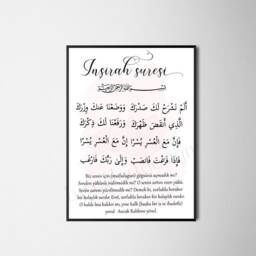 İnşirah suresi
بِسْمِ اللهِ الرَّحْمٰنِ الرَّحِيمِ
أَلَمْ نَشْرَحْ لَكَ صَدْرَكَ وَوَضَعْنَا عَنكَ وِزْرَكَ
الَّذِي أَنْقَضَ ظَهْرَكَ وَرَفَعْنَا لَكَ ذِكْرَكَ
فَإِنَّ مَعَ الْعُسْرِ يُسْرًا إِنَّ مَعَ الْعُسْرِ يُسْرًا
فَإِذَا فَرَغْتَ فَانصَبْ وَإِلَى رَبِّكَ فَارْغَب
Biz senin için (mutluluğun) göğsünü açmadık mı?
Senden yükünü indirmedik mi? O senin sırtını ezen yükü.
Senin şanını yüceltmedik mi? Demek ki, zorlukla beraber
bir kolaylık vardır. Evet, zorlukla beraber bir kolaylık vardır.
O halde boş kaldın mı, yine kalk (başka bir iş ve ibadetle)
yorul. Ancak Rabbine yönel.